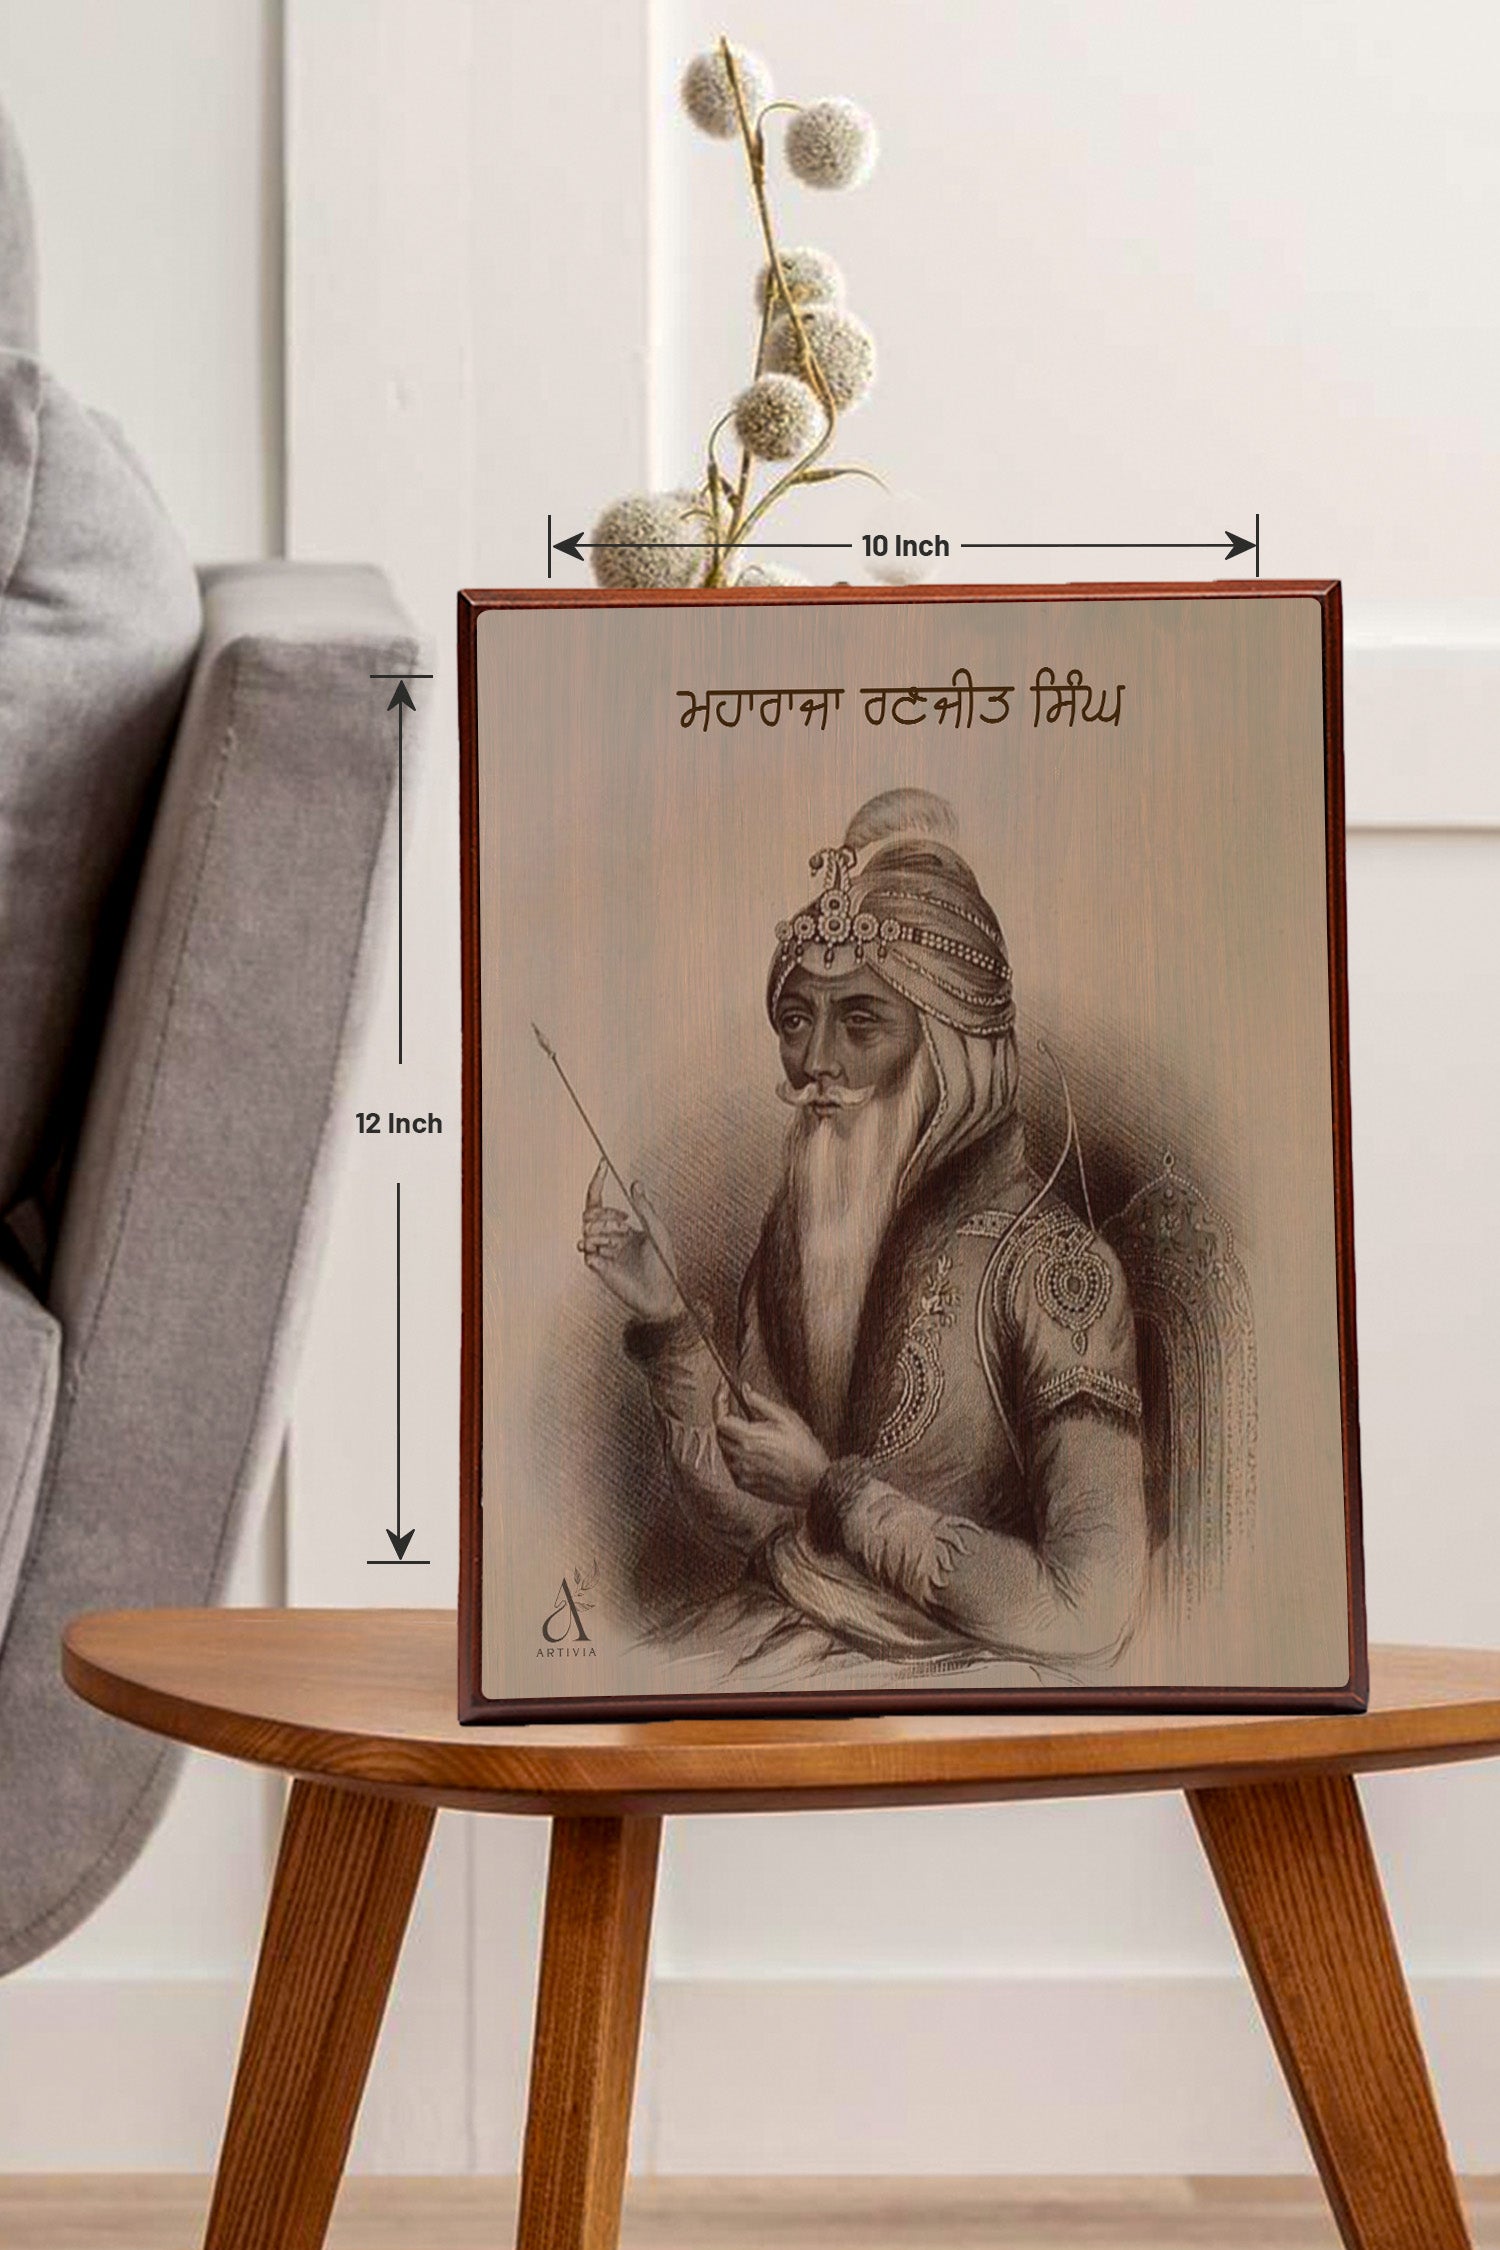 10 Inch
ਮਹਾਰਾਜਾ ਰਣਜੀਤ ਸਿੰਘ
12 Inch
ARTIVIA